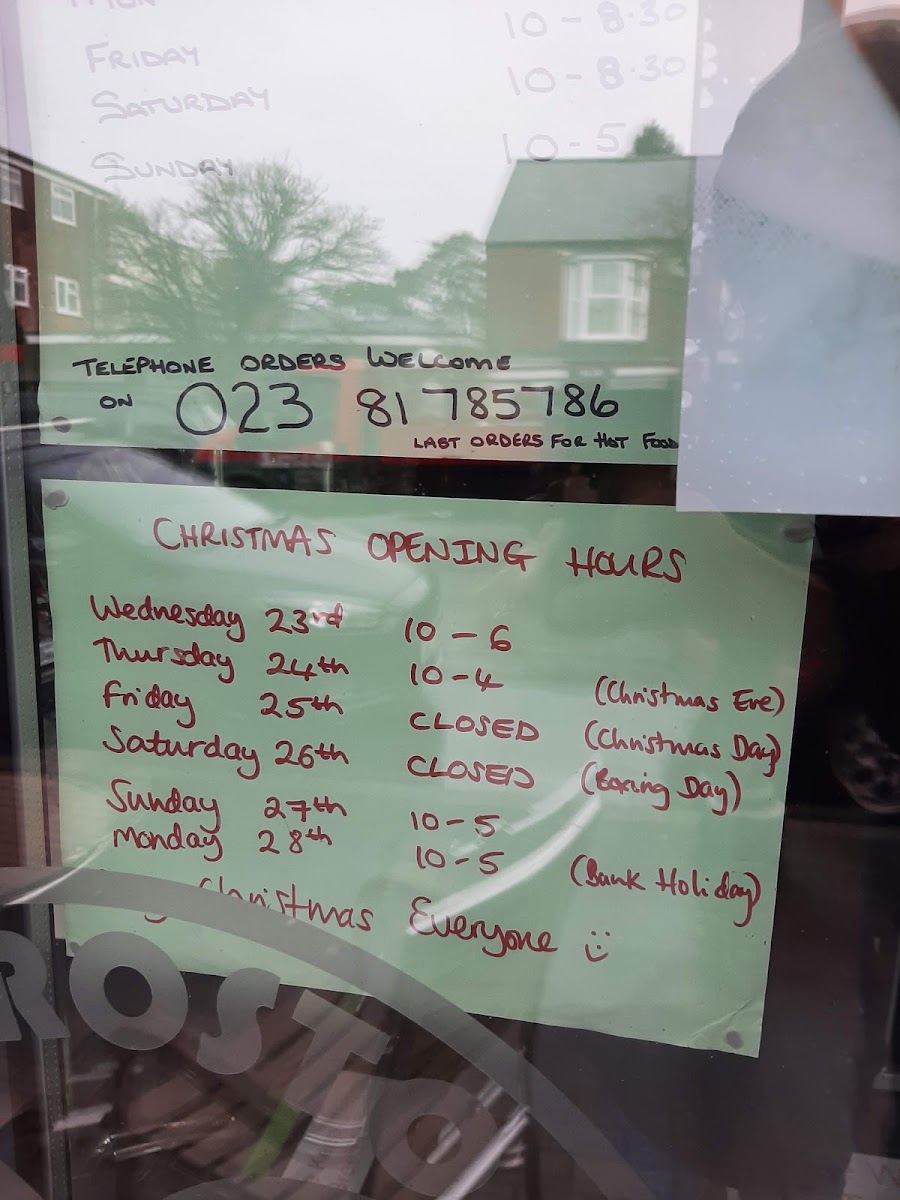 10 - 8.30
FRIDAY 10 - 8.30
SATURDAY 10 - 5
SUNDAY
TELEPHONE ORDERS WELCOME
ON 023 81785786
LAST ORDERS FOR HOT FOOD
CHRISTMAS OPENING HOURS
Wednesday 23rd 10 - 6
Thursday 24th 10 - 4 (Christmas Eve)
Friday 25th CLOSED (Christmas Day)
Saturday 26th CLOSED (Boxing Day)
Sunday 27th 10 - 5
Monday 28th 10 - 5 (Bank Holiday)
Christmas Everyone :)
ROSTO